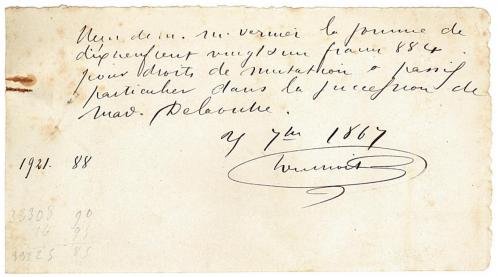 Reçu de m. m. Vernier la somme de
dixneufcent vingtun francs 88 c
pour droits de mutation & passif
particulier dans la succession de
Mad. Delaouche.
7bre 1867
1921. 88